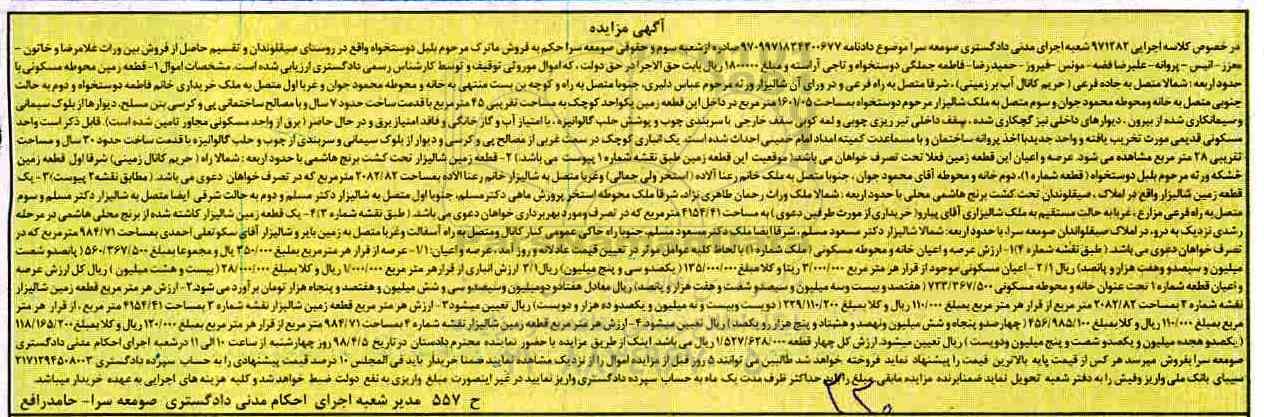 آگهی مزایده
در خصوص کلاسه اجرایی ۹۷۱۲۸۲ شعبه اجرای مدنی دادگستری صومعه سرا موضوع دادنامه ۹۷۰۹۹۷۱۸۳۴۳۰۰۶۷۷ صادره از شعبه سوم و حقوقی صومعه سرا حکم به فروش ماترک مرحوم بلبل دوستخواه واقع در روستای صیقلوندان و تقسیم حاصل از فروش بین وراث غلامرضا و خاتون -
معزز - انیس - پروانه - علیرضا فضه - مونس - فیروز - حمیدرضا - فاطمه جملگی دوستخواه و تاجی آراسته و مبلغ ۱۸۰۰۰۰۰ ریال بابت حق الاجرا در حق دولت، که اموال موروثی توقیف و توسط کارشناس رسمی دادگستری ارزیابی شده است. مشخصات اموال ۱- قطعه زمین محوطه مسکونی با
حدود اربعه : شمالا متصل به جاده فرعی ( حریم کانال آب بر زمینی) ، شرقا متصل به راه فرعی و در ورای آن شالیزار ورثه مرحوم عباس دلیری، جنوبا متصل به راه و کوچه بن بست منتهی به خانه و محوطه محمود جوان و غربا اول متصل به ملک خریداری خانم فاطمه دوستخواه و دوم به حالت
جنوبی متصل به خانه ومحوطه محمود جوان و سوم متصل به ملک شالیزار مرحوم دوستخواه بمساحت ۱۶۰۱/۰۵ متر مربع در داخل این قطعه زمین یکواحد کوچک به مساحت تقریبی ۴۵ متر مربع با قدمت ساخت حدود ۷ سال و با مصالح ساختمانی پی و کرسی بتن مسلح، دیوارها از بلوک سیمانی
وسیمانکاری شده از بیرون ، دیوارهای داخلی نیز گچکاری شده ، سقف داخلی تیر ریزی چوبی و لمه کوبی سقف خارجی با سربندی چوب و پوشش حلب گالوانیزه ، با امتیاز آب و گاز خانگی و فاقد امتیاز برق و در حال حاضر (برق از واحد مسکونی مجاور تامین شده است). قابل ذکر است واحد
مسکونی قدیمی مورث تخریب یافته و واحد جدید با اخذ پروانه ساختمان و با مساعدت کمیته امداد امام خمینی احداث شده است. یک انباری کوچک در سمت غربی از مصالح پی و کرسی و دیوار از بلوک سیمانی و سربندی از چوب و حلب گالوانیزه با قدمت ساخت حدود ۳۰ سال و مساحت
تقریبی ۲۸ متر مربع مشاهده می شود. عرصه و اعیان این قطعه زمین فعلا تحت تصرف خواهان می باشد( موقعیت این قطعه زمین طبق نقشه شماره ۱ پیوست می باشد) ۲- قطعه زمین شالیزار تحت کشت برنج هاشمی با حدود اربعه : شمالا راه ( حریم کانال زمینی) شرقا اول قطعه زمین
خشکه ورثه مرحوم بلبل دوستخواه ( قطعه شماره ۱)، دوم خانه و محوطه آقای محمود جوان ، جنوبا متصل به ملک خانم رعنا آلاده (استخر ولی جمالی) وغربا متصل به شالیزار خانم رعنا الاده بمساحت ۲۰۸۲/۸۲ مترمربع که در تصرف خواهان دعوی می باشد . (مطابق نقشه۲ پیوست)۳- یک
قطعه زمین شالیزار واقع در املاک ، صیقلوندان تحت کشت برنج هاشمی محلی با حدود اربعه : شمالا ملک وراث رحمان طاهری نژاد، شرقا ملک محوطه استخر پرورش ماهی دکتر مسلم، جنوبا اول متصل به شالیزار دکتر مسلم و دوم به حالت شرقی ایضا متصل به شالیزار دکتر مسلم و سوم
متصل به راه فرعی مزارع ، غربا به حالت مستقیم به ملک شالیزاری آقای پیارو( خریداری از مورث طرفین دعوی ) به مساحت ۴۱۵۴/۴۱ مترمربع که در تصرف ومورد بهربرداری خواهان دعوی می باشد . ( طبق نقشه شماره ۳)۴- یک قطعه زمین شالیزار کاشته شده از برنج محلی هاشمی در مرحله
رشدی نزدیک به درو، در املاک صیقلواندان صومعه سرا، با حدود اربعه: شمالا شالیزار دکتر مسعود مسلم ، شرقا ایضا ملک دکتر مسعود مسلم، جنوبا راه خاکی عمومی کنار کانال ومتصل به راه آسفالت وغربا متصل به زمین بایر و شالیزار آقای سکوتعلی احمدی بمساحت ۹۸۴/۷۱ متر مربع که در
تصرف خواهان دعوی می باشد. ( طبق نقشه شماره ۴)۱- ارزش عرصه و اعیان خانه و محوطه مسکونی ( ملک شماره۱) با لحاظ کلیه عوامل موثر در تعیین قیمت عادلانه و روز آمد، عرصه و اعیان: ۱/۱- عرصه از قرار هر متر مربع بمبلغ ۳۵۰/۰۰۰ یال و مجموعا بمبلغ ۵۶۰/۳۶۷/۵۰۰( پانصدو شصت
میلیون و سیصدو وهفت هزار و پانصد) ریال ۲/۱ - اعیان مسکونی موجود از قرار هر متر مربع ۳/۰۰۰/۰۰۰ ریتا و کلا مبلغ ۱۳۵/۰۰۰/۰۰۰ ( یکصدو سی و پنج میلیون) ریال ۳/۱ ارزش انباری از قرار هر متر مربع ۱/۰۰۰/۰۰۰ ریال و کلا بمبلغ ۲۸/۰۰۰/۰۰۰ ( بیست و هشت میلیون ) ریال کل ارزش عرصه
و اعیان قطعه شماره ۱ تحت عنوان خانه و محوطه مسکونی ۷۲۳/۳۶۷/۵۰۰ ( هفتصد و بیست وسه میلیون و سیصدو شصت و هفت هزار و پانصد) ریال معادل هفتادو دومیلیون وسیصدو سی و شش میلیون و هفتصد و پنجاه هزار تومان برآورد می شود ۲- ارزش هر متر مربع قطعه زمین شالیزار
نقشه شماره ۲ بمساحت ۲۰۸۲/۸۲ متر مربع از قرار هر متر مربع بمبلغ ۱۱۰/۰۰۰ ریال و کلا بمبلغ ۲۲۹/۱۱۰/۲۰۰ ( دویست وبیست و نه میلیون و یکصدو ده هزار و دویست) ریال تعیین میشود۳- ارزش هر متر مربع قطعه زمین شالیزار نقشه شماره ۳ بمساحت ۴۱۵۴/۴۱ متر مربع ، از قرار هر متر
مربع بمبلغ ۱۱۰/۰۰۰ ریال و کلا بمبلغ ۴۵۶/۹۸۵/۱۰۰ ( چهارصدو پنجاه و شش میلیون ونهصد و هشتاد و پنج هزار رو یکصد ) ریال تعیین میشود ۴- ارزش هر متر مربع قطعه زمین شالیزار نقشه شماره ۴ بمساحت ۹۸۴/۷۱ متر مربع از قرار هر متر مربع بمبلغ ۱۲۰/۰۰۰ ریال و کلا بمبلغ ۱۱۸/۱۶۵/۲۰۰
( یکصدو هجده میلیون و یکصدو شصت و پنج میلیون ودویست ) ریال تعیین میشود. ارزش کل چهار قطعه ۱/۵۲۷/۶۲۸/۰۰۰ ریال می باشد. اینک از طریق مزایده با حضور نماینده محترم دادستان در تاریخ ۹۸/۴/۵ روز چهارشنبه از ساعت ۱۰ الی ۱۱ در شعبه اجرای احکام مدنی دادگستری
صومعه سرا بفروش میرسد هر کس از قیمت پایه بالاترین قیمت را پیشنهاد نماید فروخته خواهد شد طالبین می توانند ۵ روز قبل از مزایده اموال را از نزدیک مشاهده نمایند ضمنا خریدار باید فی المجلس ۱۰ درصد قیمت پیشنهادی را به حساب سپرده دادگستری ۲۱۷۱۲۹۴۵۰۸۰۰۳
سیبای بانک ملی واریز وفیش را به دفتر شعبه تحویل نماید ضمنابرنده مزایده مابقی مبلغ را حداکثر ظرف مدت یک ماه به حساب سپرده دادگستری واریز نمایید در غیر اینصورت مبلغ واریزی به نفع دولت ضبط خواهد شد و کلیه هزینه های اجرایی به عهده خریدار میباشد.
ح ۵۵۷ مدیر شعبه اجرای احکام مدنی دادگستری صومعه سرا- حامدرافع